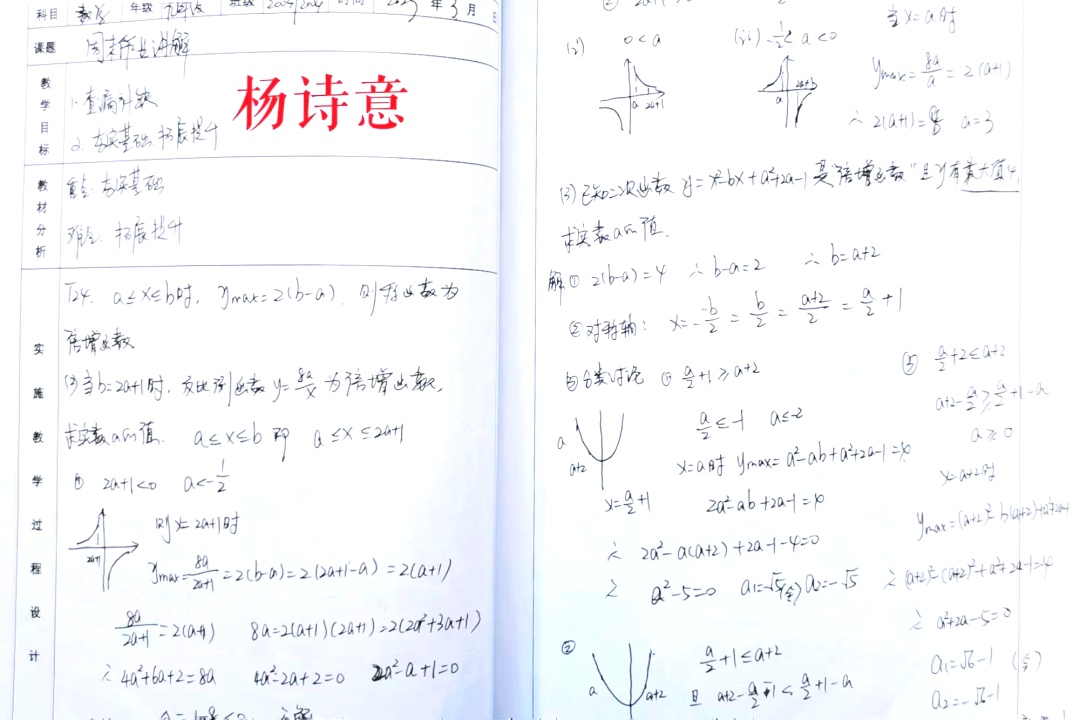 科目 数学 年级 九年级 班级 时间 年3月 日
课题 周末作业讲解
教学目标
1. 查漏补缺
2. 夯实基础 拓展提升
杨诗意
教材分析
重点: 夯实基础
难点: 拓展提升
实施教学过程设计
T24. a≤x≤b时, ymax=2(b-a). 则称函数为
倍增函数
(2)当b=2a+1时, 反比例函数 y=8a/x 为倍增函数,
求实数a的值. a≤x≤b 即 a≤x≤2a+1
① 2a+1<0 a<-1/2
2a+1
则x=2a+1时
ymax=8a/(2a+1)=2(b-a)=2(2a+1-a)=2(a+1)
8a/(2a+1)=2(a+1) 8a=2(a+1)(2a+1)=2(2a²+3a+1)
∴ 4a²+6a+2=8a 4a²-2a+2=0 2a²-a+1=0
当x=a时
(i) 0<a (ii) -1/2<a<0
a 2a+1
ymax=8a/a=2(a+1)
∴ 2(a+1)=8 a=3
(3) 已知二次函数 y=x²-bx+a²+2a-1 是"倍增函数"且y有最大值4,
求实数a的值.
解① 2(b-a)=4 ∴ b-a=2 ∴ b=a+2
②对称轴: x=--b/2=b/2=(a+2)/2=a/2+1
③分类讨论 ① a/2+1≥a+2
a/2≤-1 a≤-2
a a+2
x=a/2+1
x=a时 ymax=a²-ab+a²+2a-1=4
2a²-ab+2a-1=4
∴ 2a²-a(a+2)+2a-1-4=0
∴ a²-5=0 a1=√5(舍) a2=-√5
② a/2+1≤a+2
a a+2
且 a+2-a/2-1<a/2+1-a
③ a/2+2≤a+2
a+2-a/2≥a/2+1-a
a≥0
x=a+2时
ymax=(a+2)²-b(a+2)+a²+2a-1
∴ (a+2)²-(a+2)²+a²+2a-1=4
∴ a²+2a-5=0
a1=√6-1 (舍)
a2=-√6-1